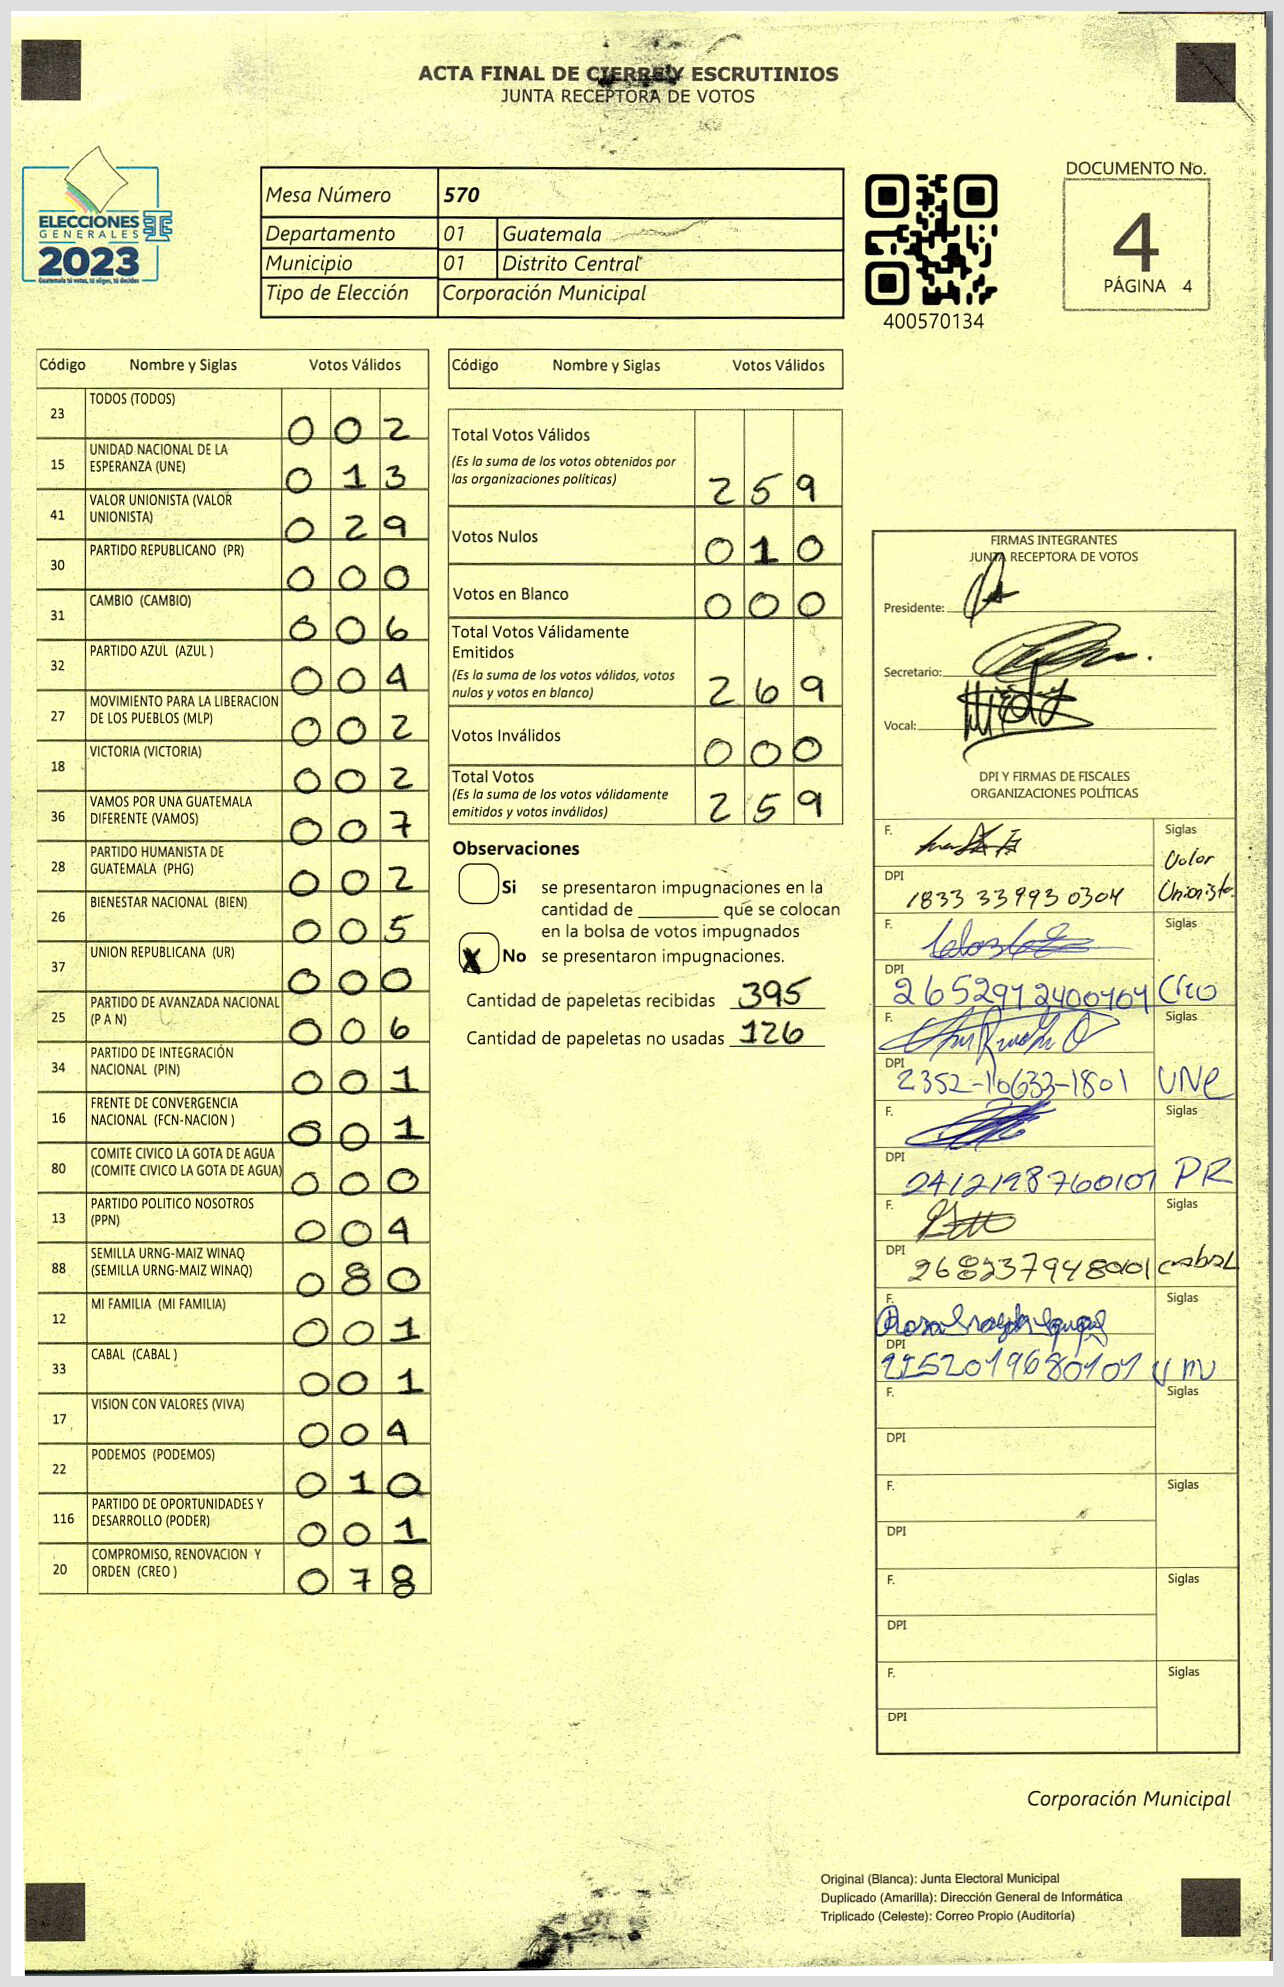 ACTA FINAL DE CIERRE Y ESCRUTINIOS
JUNTA RECEPTORA DE VOTOS
ELECCIONES
GENERALES
2023
Guatemala tú votas, tú eliges, tú decides
Mesa Número 570
Departamento 01 Guatemala
Municipio 01 Distrito Central
Tipo de Elección Corporación Municipal
400570134
DOCUMENTO No.
4
PÁGINA 4
Código Nombre y Siglas Votos Válidos
23 TODOS (TODOS) 0 0 2
15 UNIDAD NACIONAL DE LA
ESPERANZA (UNE) 0 1 3
41 VALOR UNIONISTA (VALOR
UNIONISTA) 0 2 9
30 PARTIDO REPUBLICANO (PR) 0 0 0
31 CAMBIO (CAMBIO) 0 0 6
32 PARTIDO AZUL (AZUL ) 0 0 4
27 MOVIMIENTO PARA LA LIBERACION
DE LOS PUEBLOS (MLP) 0 0 2
18 VICTORIA (VICTORIA) 0 0 2
36 VAMOS POR UNA GUATEMALA
DIFERENTE (VAMOS) 0 0 7
28 PARTIDO HUMANISTA DE
GUATEMALA (PHG) 0 0 2
26 BIENESTAR NACIONAL (BIEN) 0 0 5
37 UNION REPUBLICANA (UR) 0 0 0
25 PARTIDO DE AVANZADA NACIONAL
(P A N) 0 0 6
34 PARTIDO DE INTEGRACIÓN
NACIONAL (PIN) 0 0 1
16 FRENTE DE CONVERGENCIA
NACIONAL (FCN-NACION ) 0 0 1
80 COMITE CIVICO LA GOTA DE AGUA
(COMITE CIVICO LA GOTA DE AGUA) 0 0 0
13 PARTIDO POLITICO NOSOTROS
(PPN) 0 0 4
88 SEMILLA URNG-MAIZ WINAQ
(SEMILLA URNG-MAIZ WINAQ) 0 8 0
12 MI FAMILIA (MI FAMILIA) 0 0 1
33 CABAL (CABAL ) 0 0 1
17 VISION CON VALORES (VIVA) 0 0 4
22 PODEMOS (PODEMOS) 0 1 0
116 PARTIDO DE OPORTUNIDADES Y
DESARROLLO (PODER) 0 0 1
20 COMPROMISO, RENOVACION Y
ORDEN (CREO ) 0 7 8
Código Nombre y Siglas Votos Válidos
Total Votos Válidos
(Es la suma de los votos obtenidos por
las organizaciones políticas) 2 5 9
Votos Nulos 0 1 0
Votos en Blanco 0 0 0
Total Votos Válidamente
Emitidos
(Es la suma de los votos válidos, votos
nulos y votos en blanco) 2 6 9
Votos Inválidos 0 0 0
Total Votos
(Es la suma de los votos válidamente
emitidos y votos inválidos) 2 5 9
Observaciones
Si se presentaron impugnaciones en la
cantidad de ________ que se colocan
en la bolsa de votos impugnados
X No se presentaron impugnaciones.
Cantidad de papeletas recibidas 395
Cantidad de papeletas no usadas 126
FIRMAS INTEGRANTES
JUNTA RECEPTORA DE VOTOS
Presidente:
Secretario:
Vocal:
DPI Y FIRMAS DE FISCALES
ORGANIZACIONES POLÍTICAS
F. Siglas
Valor
DPI 1833 33993 0304 Unionista
F. Siglas
DPI 2652912400404 Creo
F. Siglas
DPI 2352-10633-1801 UNE
F. Siglas
DPI 2412198760101 PR
F. Siglas
DPI cabal
F. Siglas
DPI
F. Siglas
DPI
F. Siglas
DPI
F. Siglas
DPI
F. Siglas
DPI
Corporación Municipal
Original (Blanca): Junta Electoral Municipal
Duplicado (Amarilla): Dirección General de Informática
Triplicado (Celeste): Correo Propio (Auditoría)